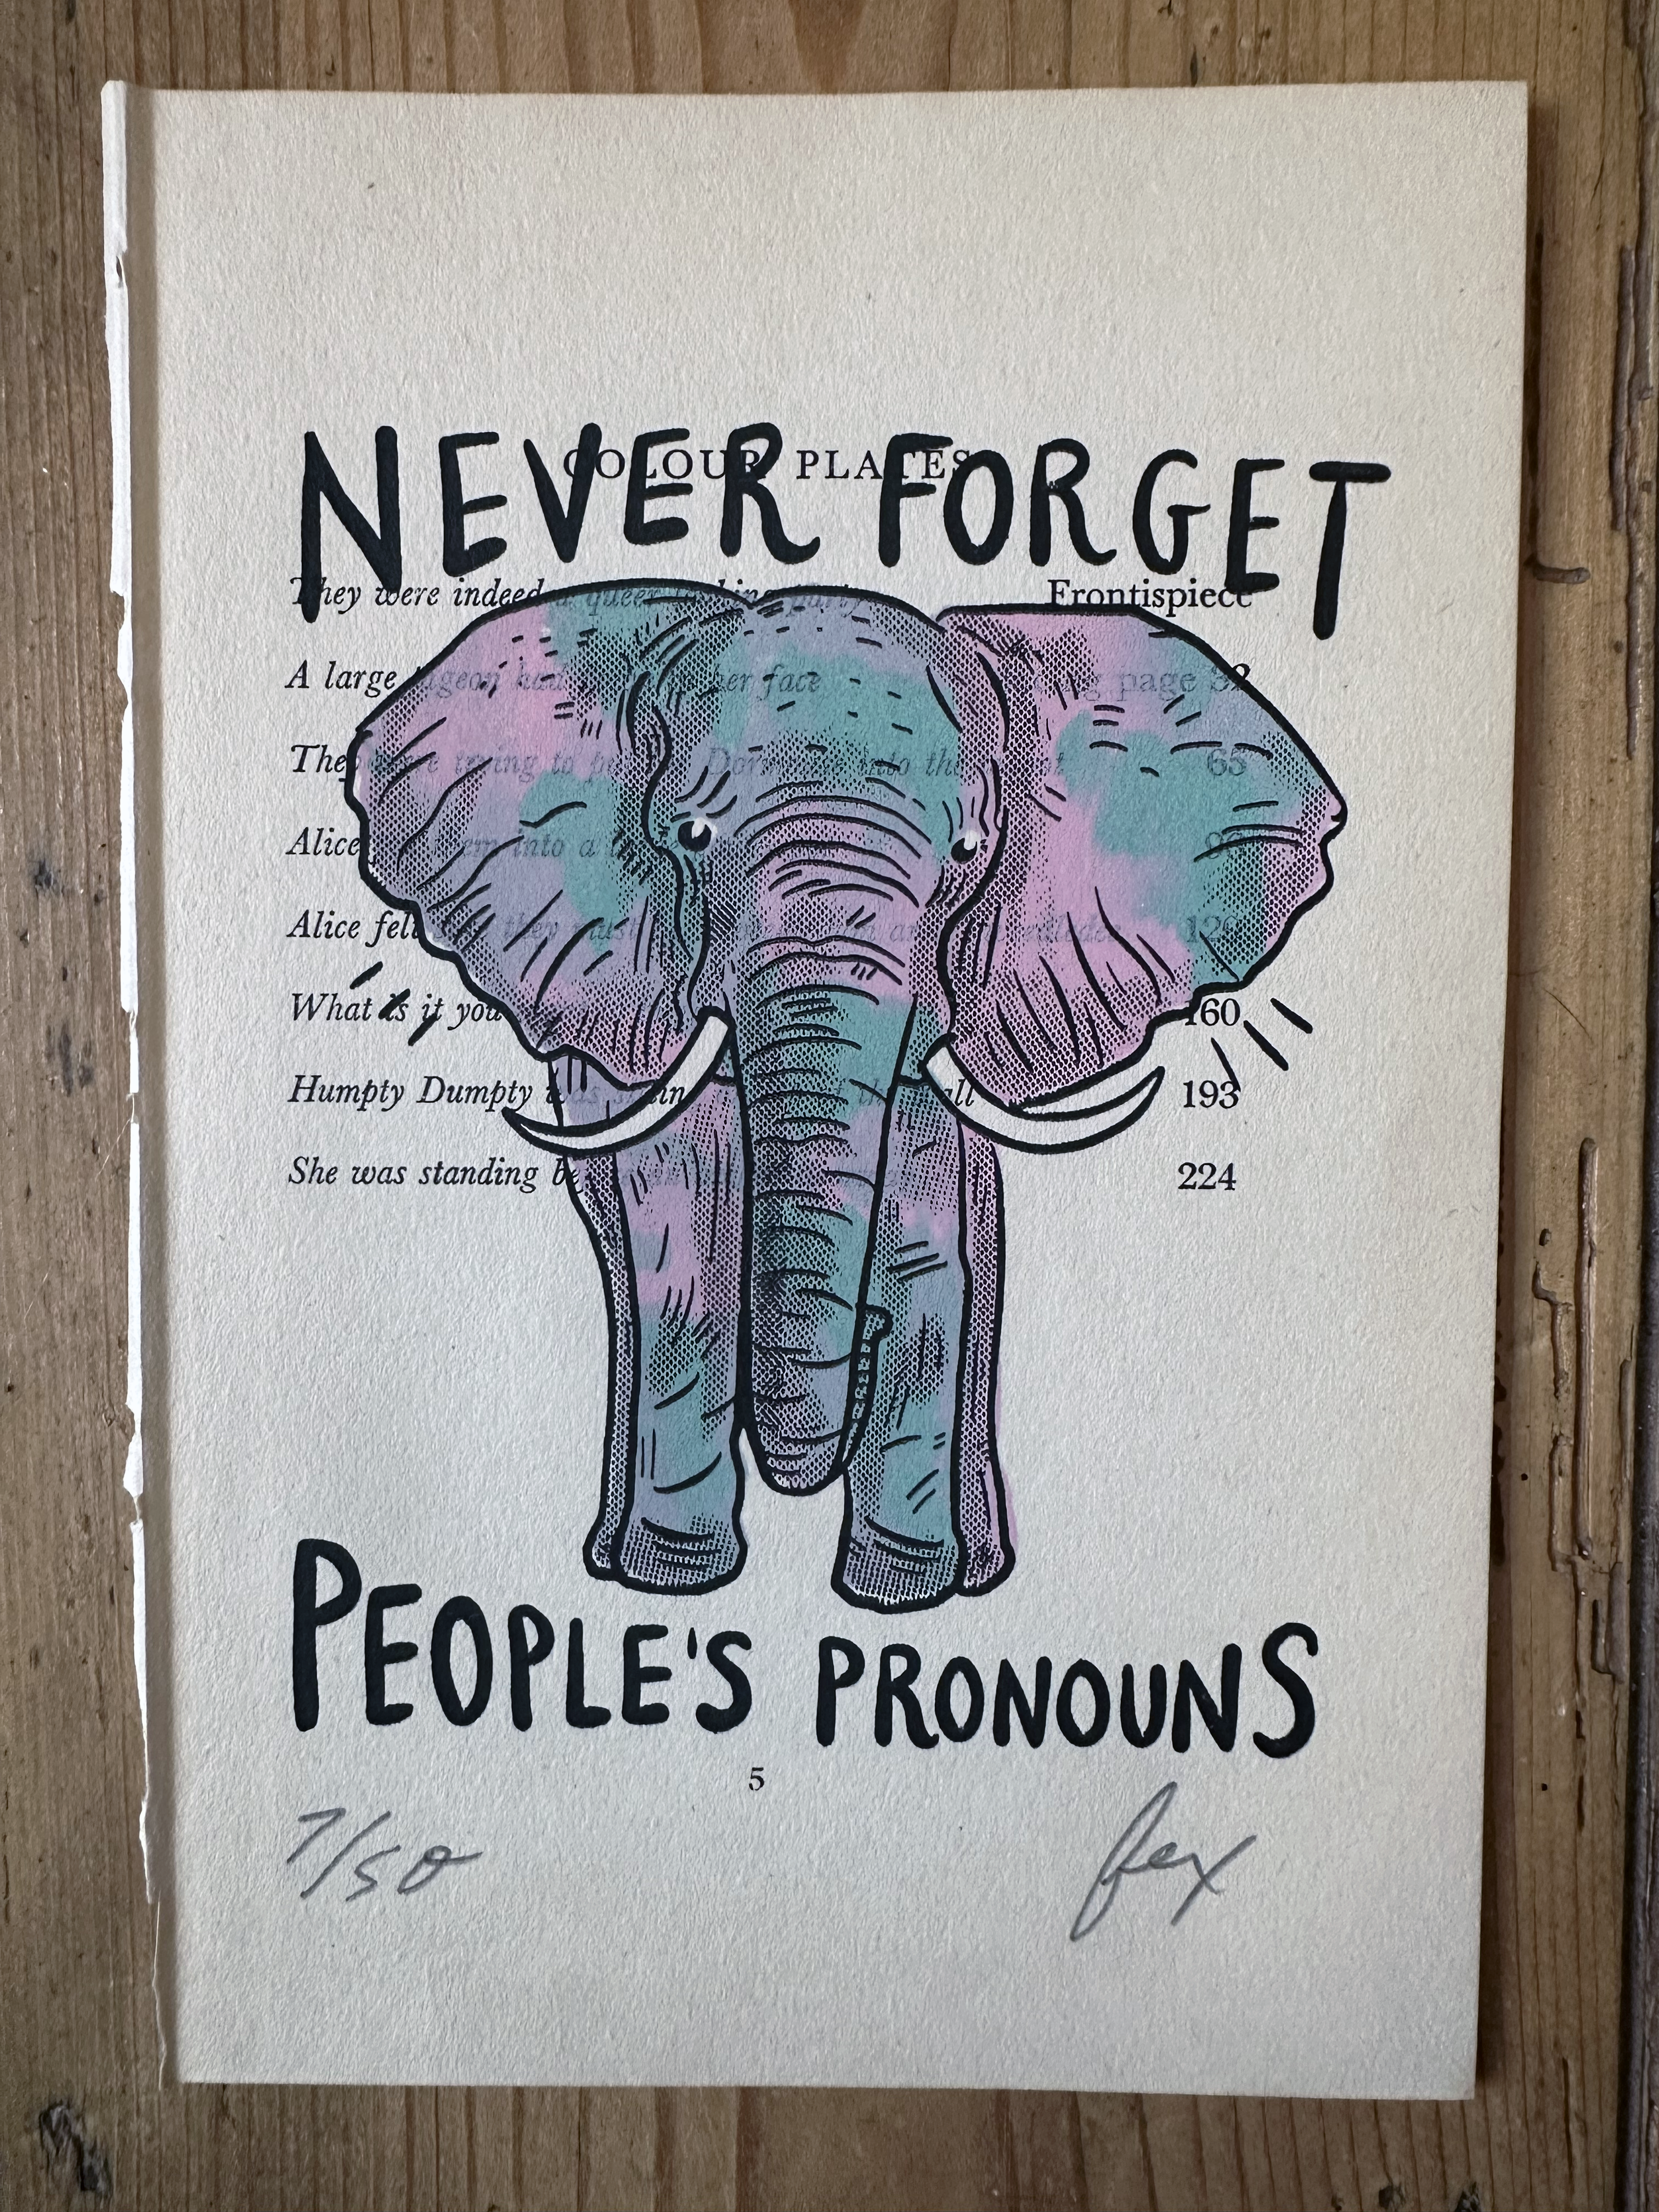 NEVER FORGET
COLOUR PLATES
They were indeed a queer looking party Frontispiece
A large pigeon had her face facing page 32
They were trying to put Dormouse into the 65
Alice them into a
Alice fell they 129
What is it you 160
Humpty Dumpty was sitting wall 193
She was standing be 224
PEOPLE'S PRONOUNS
5
7/50
fex